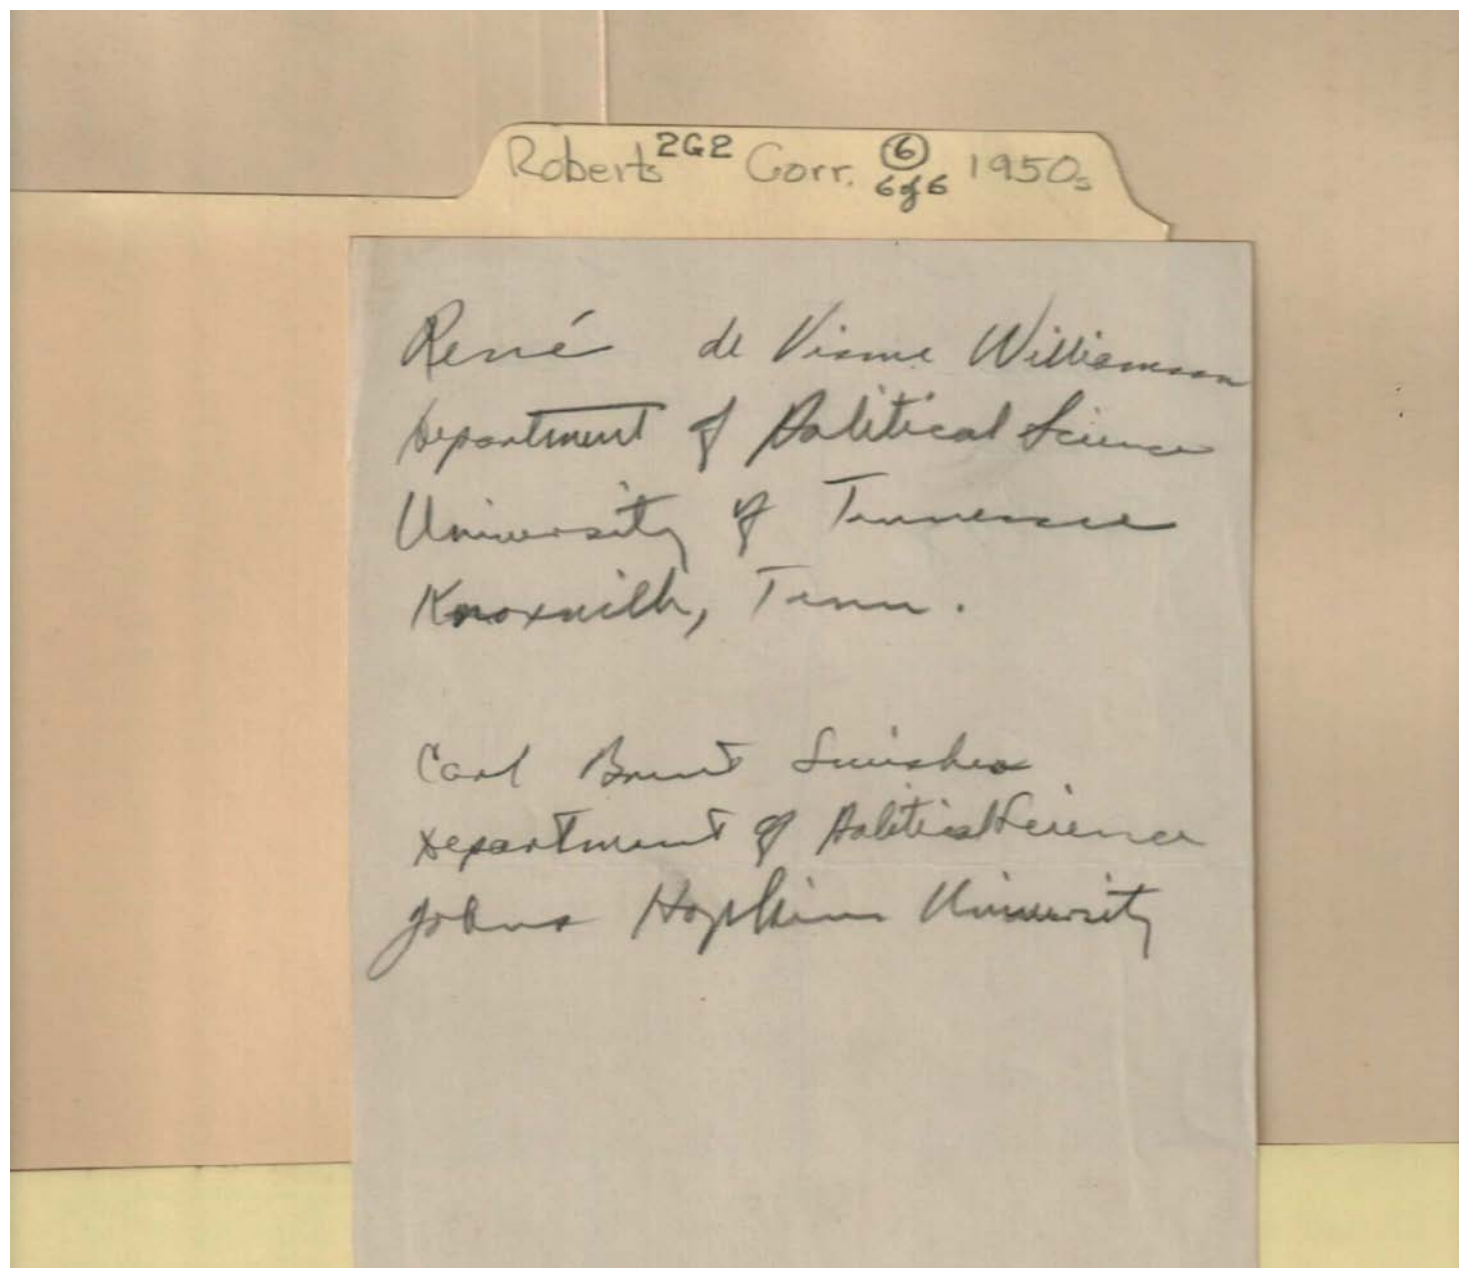 Roberts 2G2 Corr. 6 1950s
6 of 6
René de Visme Williamson
Department of Political Science
University of Tennessee
Knoxville, Tenn.
Carl Brent Swisher
Department of Political Science
Johns Hopkins University